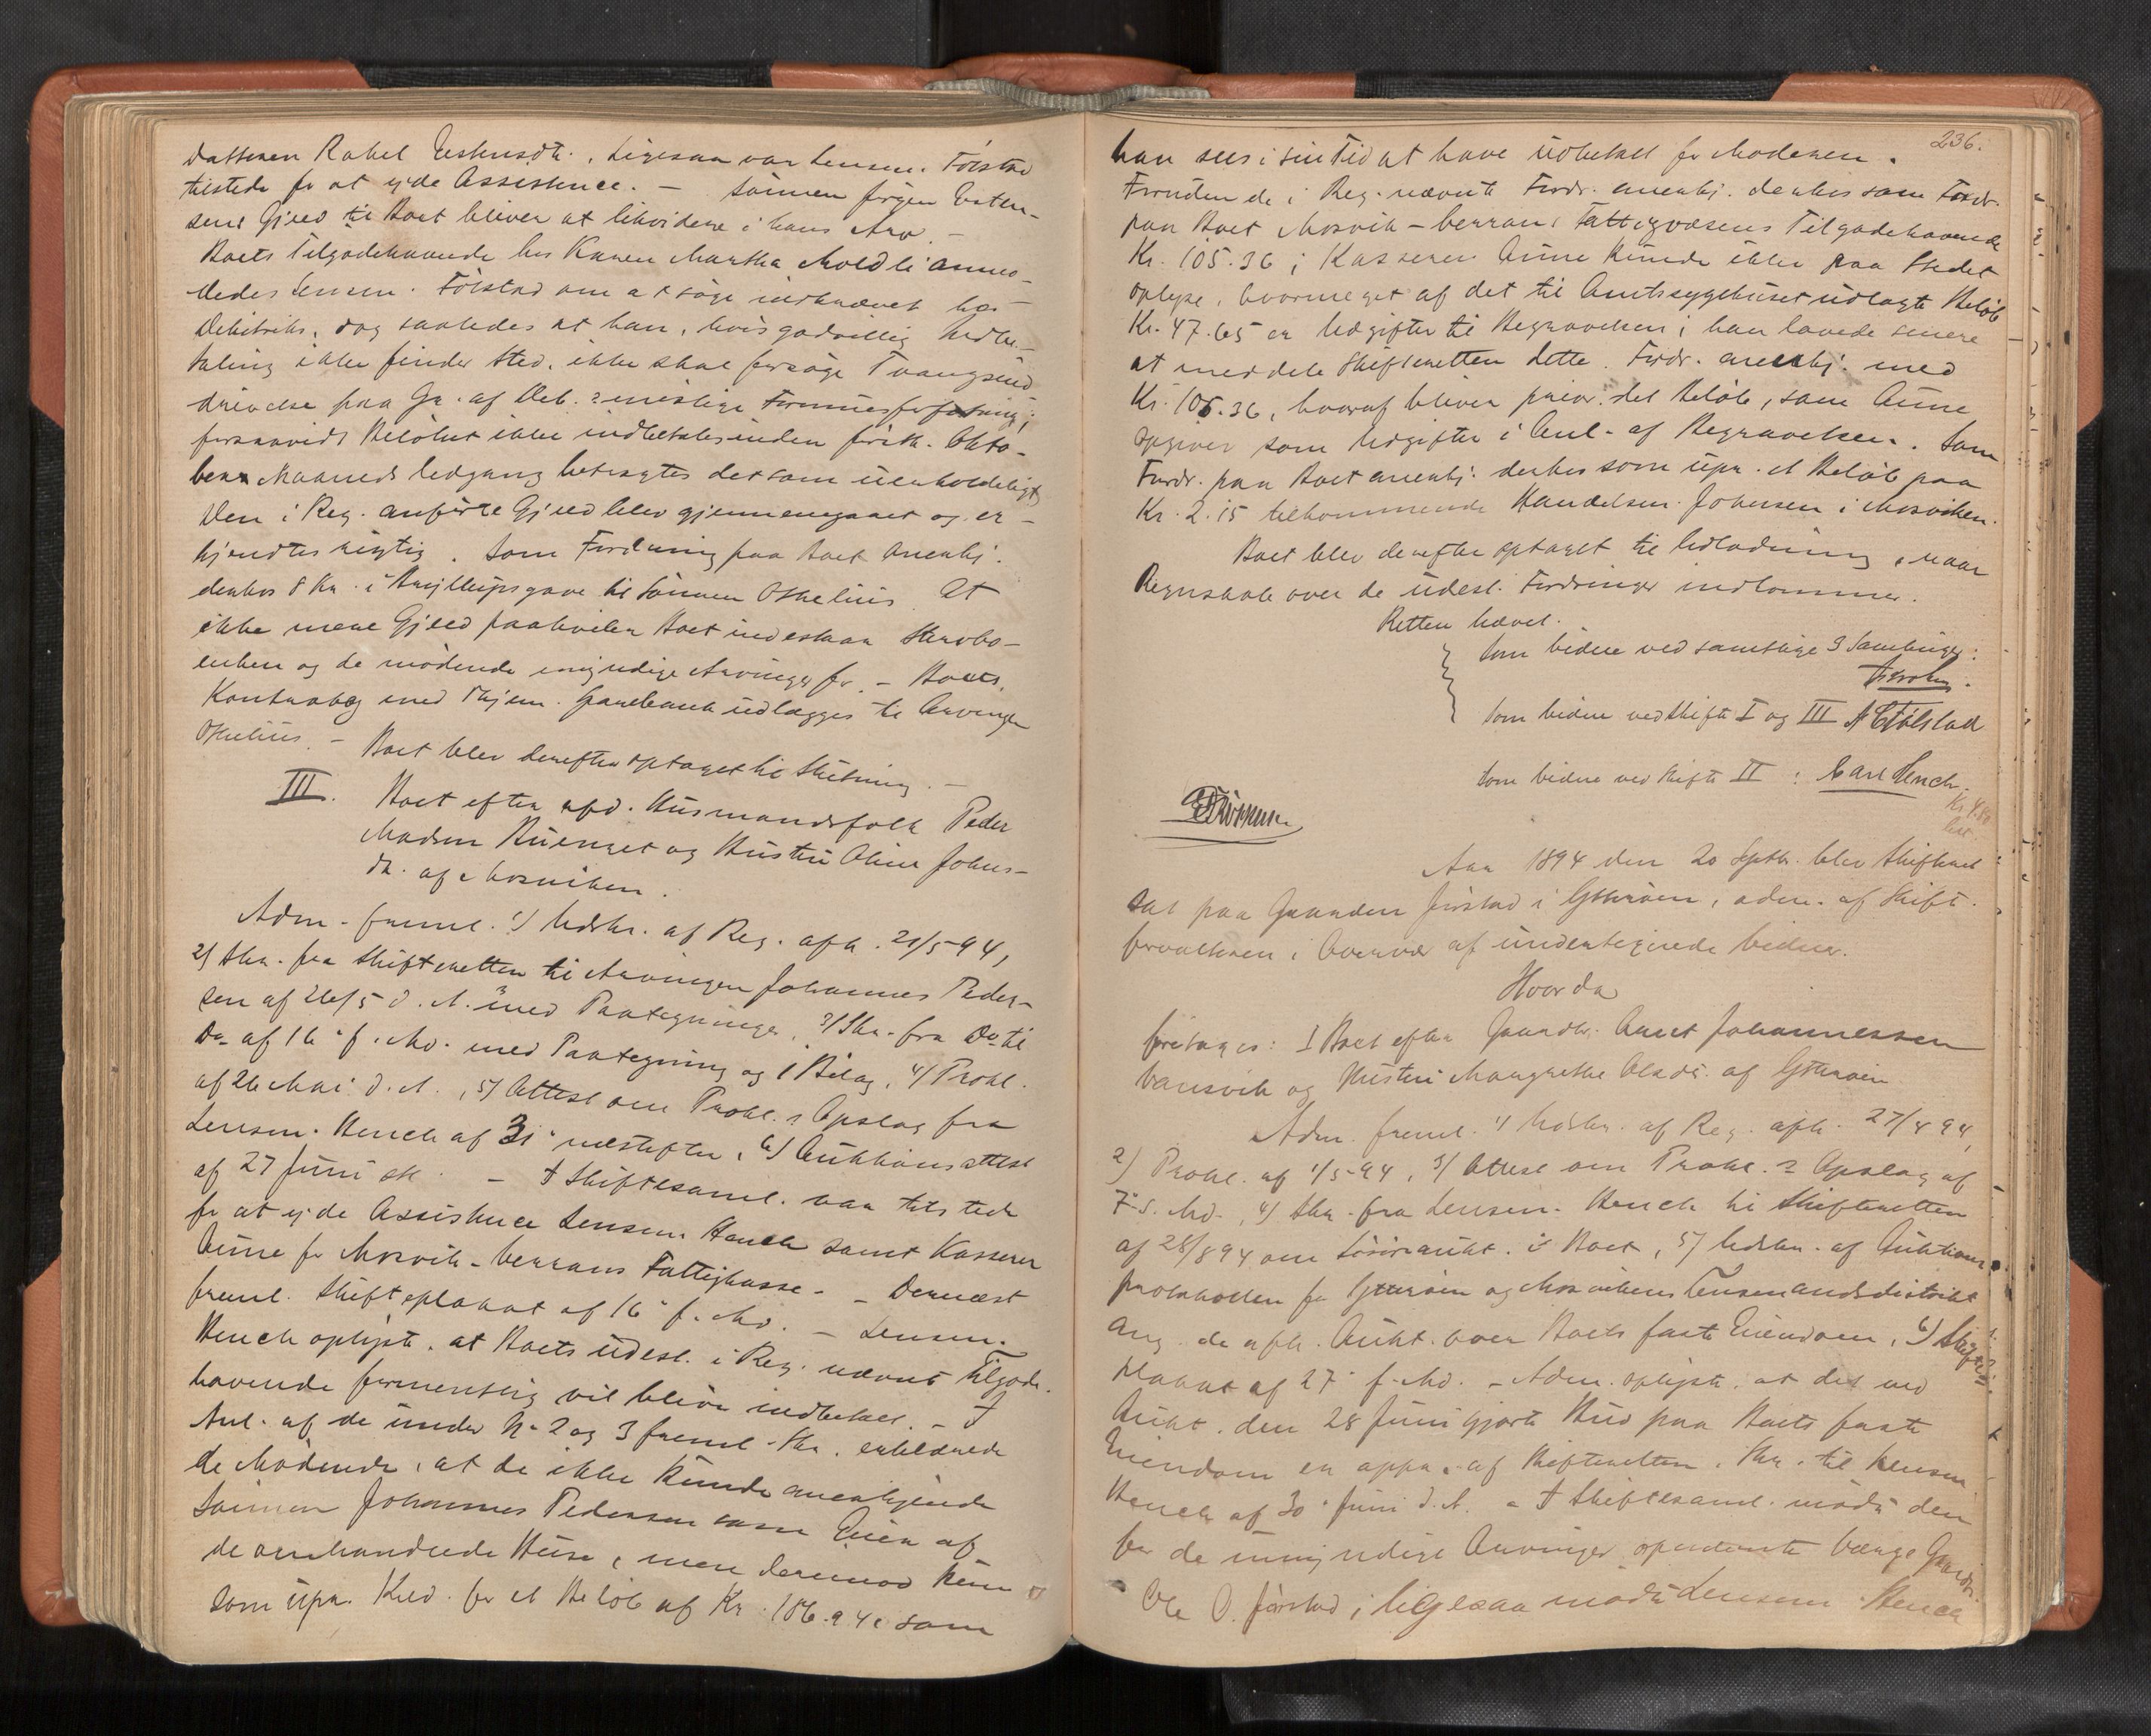 Datteren Rahel Estensdtr. Ligesaa var Lensm. Følstad
tilstede for at yde Assistence. — Sønnen Jørgen Esten-
sens Gjeld til Boet bliver at likvidere i hans Arv. —
Boets Tilgodehavende hos Karen Martha Moldli anmo-
dedes Lensm. Følstad om at søge indkrævet hos
Debitrix, dog saaledes at han, hvis godvillig Indbe-
taling ikke finder Sted, ikke skal forsøge Tvangsind
drivelse paa Gr. af Deb.s mislige Formuesforfatning;
forsaavidt Beløbet ikke indbetales inden førstk. Okto-
ber Maaneds Udgang betragtes det som uerholdeligt.
Den i Reg. anførte Gjeld blev gjennemgaaet og er-
kjendtes rigtig. Som Fordring paa Boet anerkj.
derhos 8 Kr. i Bryllupsgave til Sønnen Othelius. At
ikke mere Gjeld paahviler Boet indestaar Stervbo-
enken og de mødende myndige Arvinger for. — Boets
Kontrabog med Thjem. Sparebank udlægges til Arvingen
Othelius. — Boet blev derefter optaget til Slutning. —
III. Boet efter afd. Husmandsfolk Peder
Madsen og Hustru Oline Johns-
dtr. af Mosviken.
Adm. freml. 1) Udskr. af Reg. afh. 21/5 94,
2) Skr. fra Skifteretten til Arvingen Johannes Peder-
sen af 26/5 d. A. med Paategninger, 3) Skr. fra Do til
Do af 16' f. Md. med Paategning og 1 Bilag, 4) Prokl.
af 26 Mai d. A., 5) Attest om Prokl.s Opslag fra
Lensm. Hench af 31' næstefter, 6) Auktionsattest
af 27 Juni — I Skiftesaml. var tilstede
for at yde Assistence Lensm. Hench samt Kasserer
Aune for Mosvik-Verrans Fattigkasse. — Dernæst
freml. Skifteplakat af 16' f. Md. — Lensm.
Hench oplyste, at Boets udest. i Reg. nævnte Tilgode-
havende formentlig vil blive indbetalt. — I
Anl. af de under No 2 og 3 freml. Skr. erklærede
de Mødende, at de ikke kunde anerkjende
Sønnen Johannes Pedersen som Eier af
de omhandlede Huse, men derimod kun
som upr. Kred. for et Beløb af Kr. 106.94 som
236.
han sees i sin Tid at have udbetalt for Moderen.
Foruden de i Reg. nævnte Fordr. anerkj. derhos som Fordr.
paa Boet Mosvik-Verrans Fattigvæsens Tilgodehavende
Kr. 105.36; Kasserer Aune kunde ikke paa Stedet
oplyse, hvormeget af det til Amtssygehuset udlagte Beløb
Kr. 47.65 er Udgifter til Begravelsen; han lovede senere
at meddele Skifteretten dette. Fordr. anerkj. med
Kr. 105.36, hvoraf bliver prior. det Beløb, som Aune
opgiver som Udgifter i Anl. af Begravelsen. Som
Fordr. paa Boet anerkj. derhos som upr. et Beløb paa
Kr. 2.15 tilkommende Handelsm. Johnsen i Mosviken.
Boet blev derefter optaget til Udlodning, naar
Regnskab over de udest. Fordringer indkommer.
Retten hævet.
Som Vidne ved samtlige 3 Samlinger:
Som Vidne ved Skifte I og III Følstad
Som Vidne ved Skifte II: Carl Hench.
Aar 1894 den 20 Septbr. blev Skifteret
sat paa Gaarden Jørstad i Ytterøen, adm. af Skift-
forvalteren i Overvær af undertegnede Vidner.
Hvorda
foretages: I Boet efter Gaardbr. Anet Johannessen
Vansvik og Hustru Margrethe Olsdtr. af Ytterøen
Adm. freml. 1) Udskr. af Reg. afh. 27/4 94,
2) Prokl. af 1/5 94, 3) Attest om Prokl.s Opslag af
7' s. Md., 4) Skr. fra Lensm. Hench til Skifteretten
af 28/8 94 om Løsøreaukt. i Boet, 5) Udskr. af Auktions-
protokollen for Ytterøen og Mosvikens Lensmandsdistrikt
ang. de afh. Aukt. over Boets faste Eiendom, 6) Skifte-
plakat af 27' f. Md. — Adm. oplyste, at det ved
Aukt. den 28 Juni gjorte Bud paa Boets faste
Eiendom er appr. af Skifteretten i Skr. til Lensm.
Hench af 30' Juni d. A. — I Skiftesaml. mødte den
for de umyndige Arvinger opnævnte Værge Gaardbr.
Ole O. Jørstad; ligesaa mødte Lensm. Hench